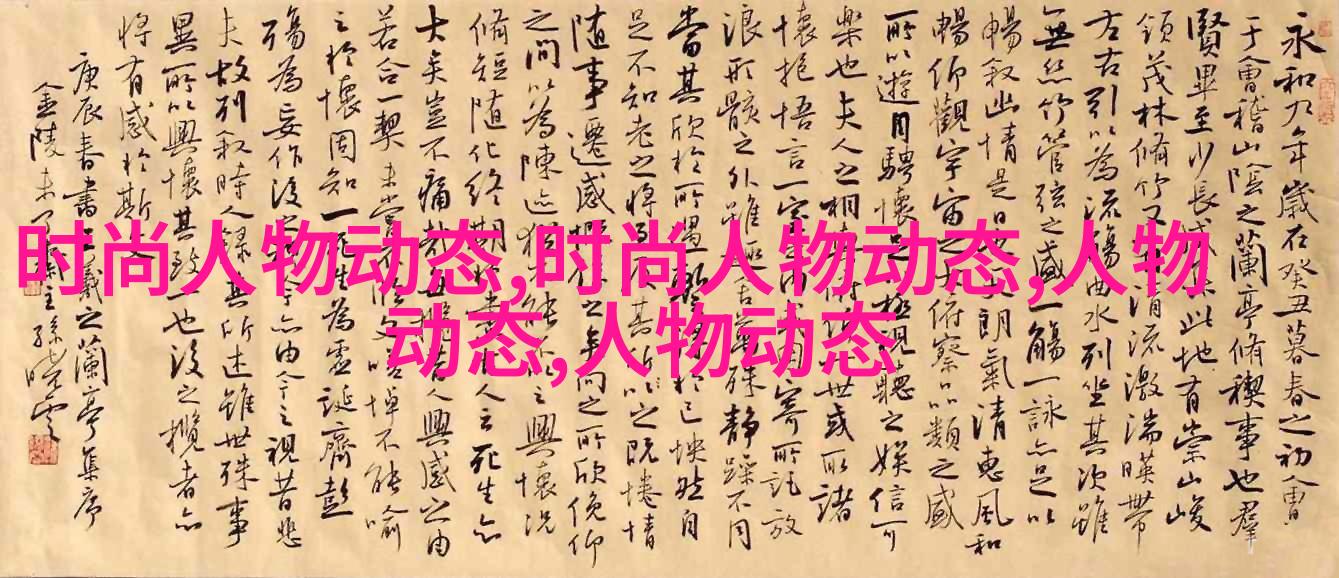 时尚人物动态,时尚人物动态,人物
动态,人物动态
永和九年歲在癸丑暮春之初會
于會稽山陰之蘭亭脩禊事也群
賢畢至少長此地有崇山峻
領茂林脩竹又清流激湍暎帶
左右引以為流觴曲水列坐其次雖
無絲竹管弦之盛一觴一詠亦足以
暢叙幽情是日朗氣清惠風和
暢仰觀宇宙之俯察品類之盛
所以遊目騁懷足極視聽之娛信可
樂也夫人之相世或取諸
懷抱悟言一室因寄所託放
浪形骸之外雖趣舍殊靜躁不同
當其欣於所遇於己怏然自
足不知老之將其所之既惓情
隨事遷感向之所欣俛仰
之間以為陳迹猶能不以之興懷況
脩短隨化終期於人云死生亦
大矣豈不痛哉昔人興感之由
若合一契未嘗文嗟悼不能喻
之於懷固知一死生為虛誕齊彭
殤為妄作後今亦由今之視昔悲
夫故列叙時人錄其所述雖世殊事
異所以興懷其致一也後之攬者亦
將有感於斯文
庚辰春書王羲之蘭亭集序
金陵孫曉雲